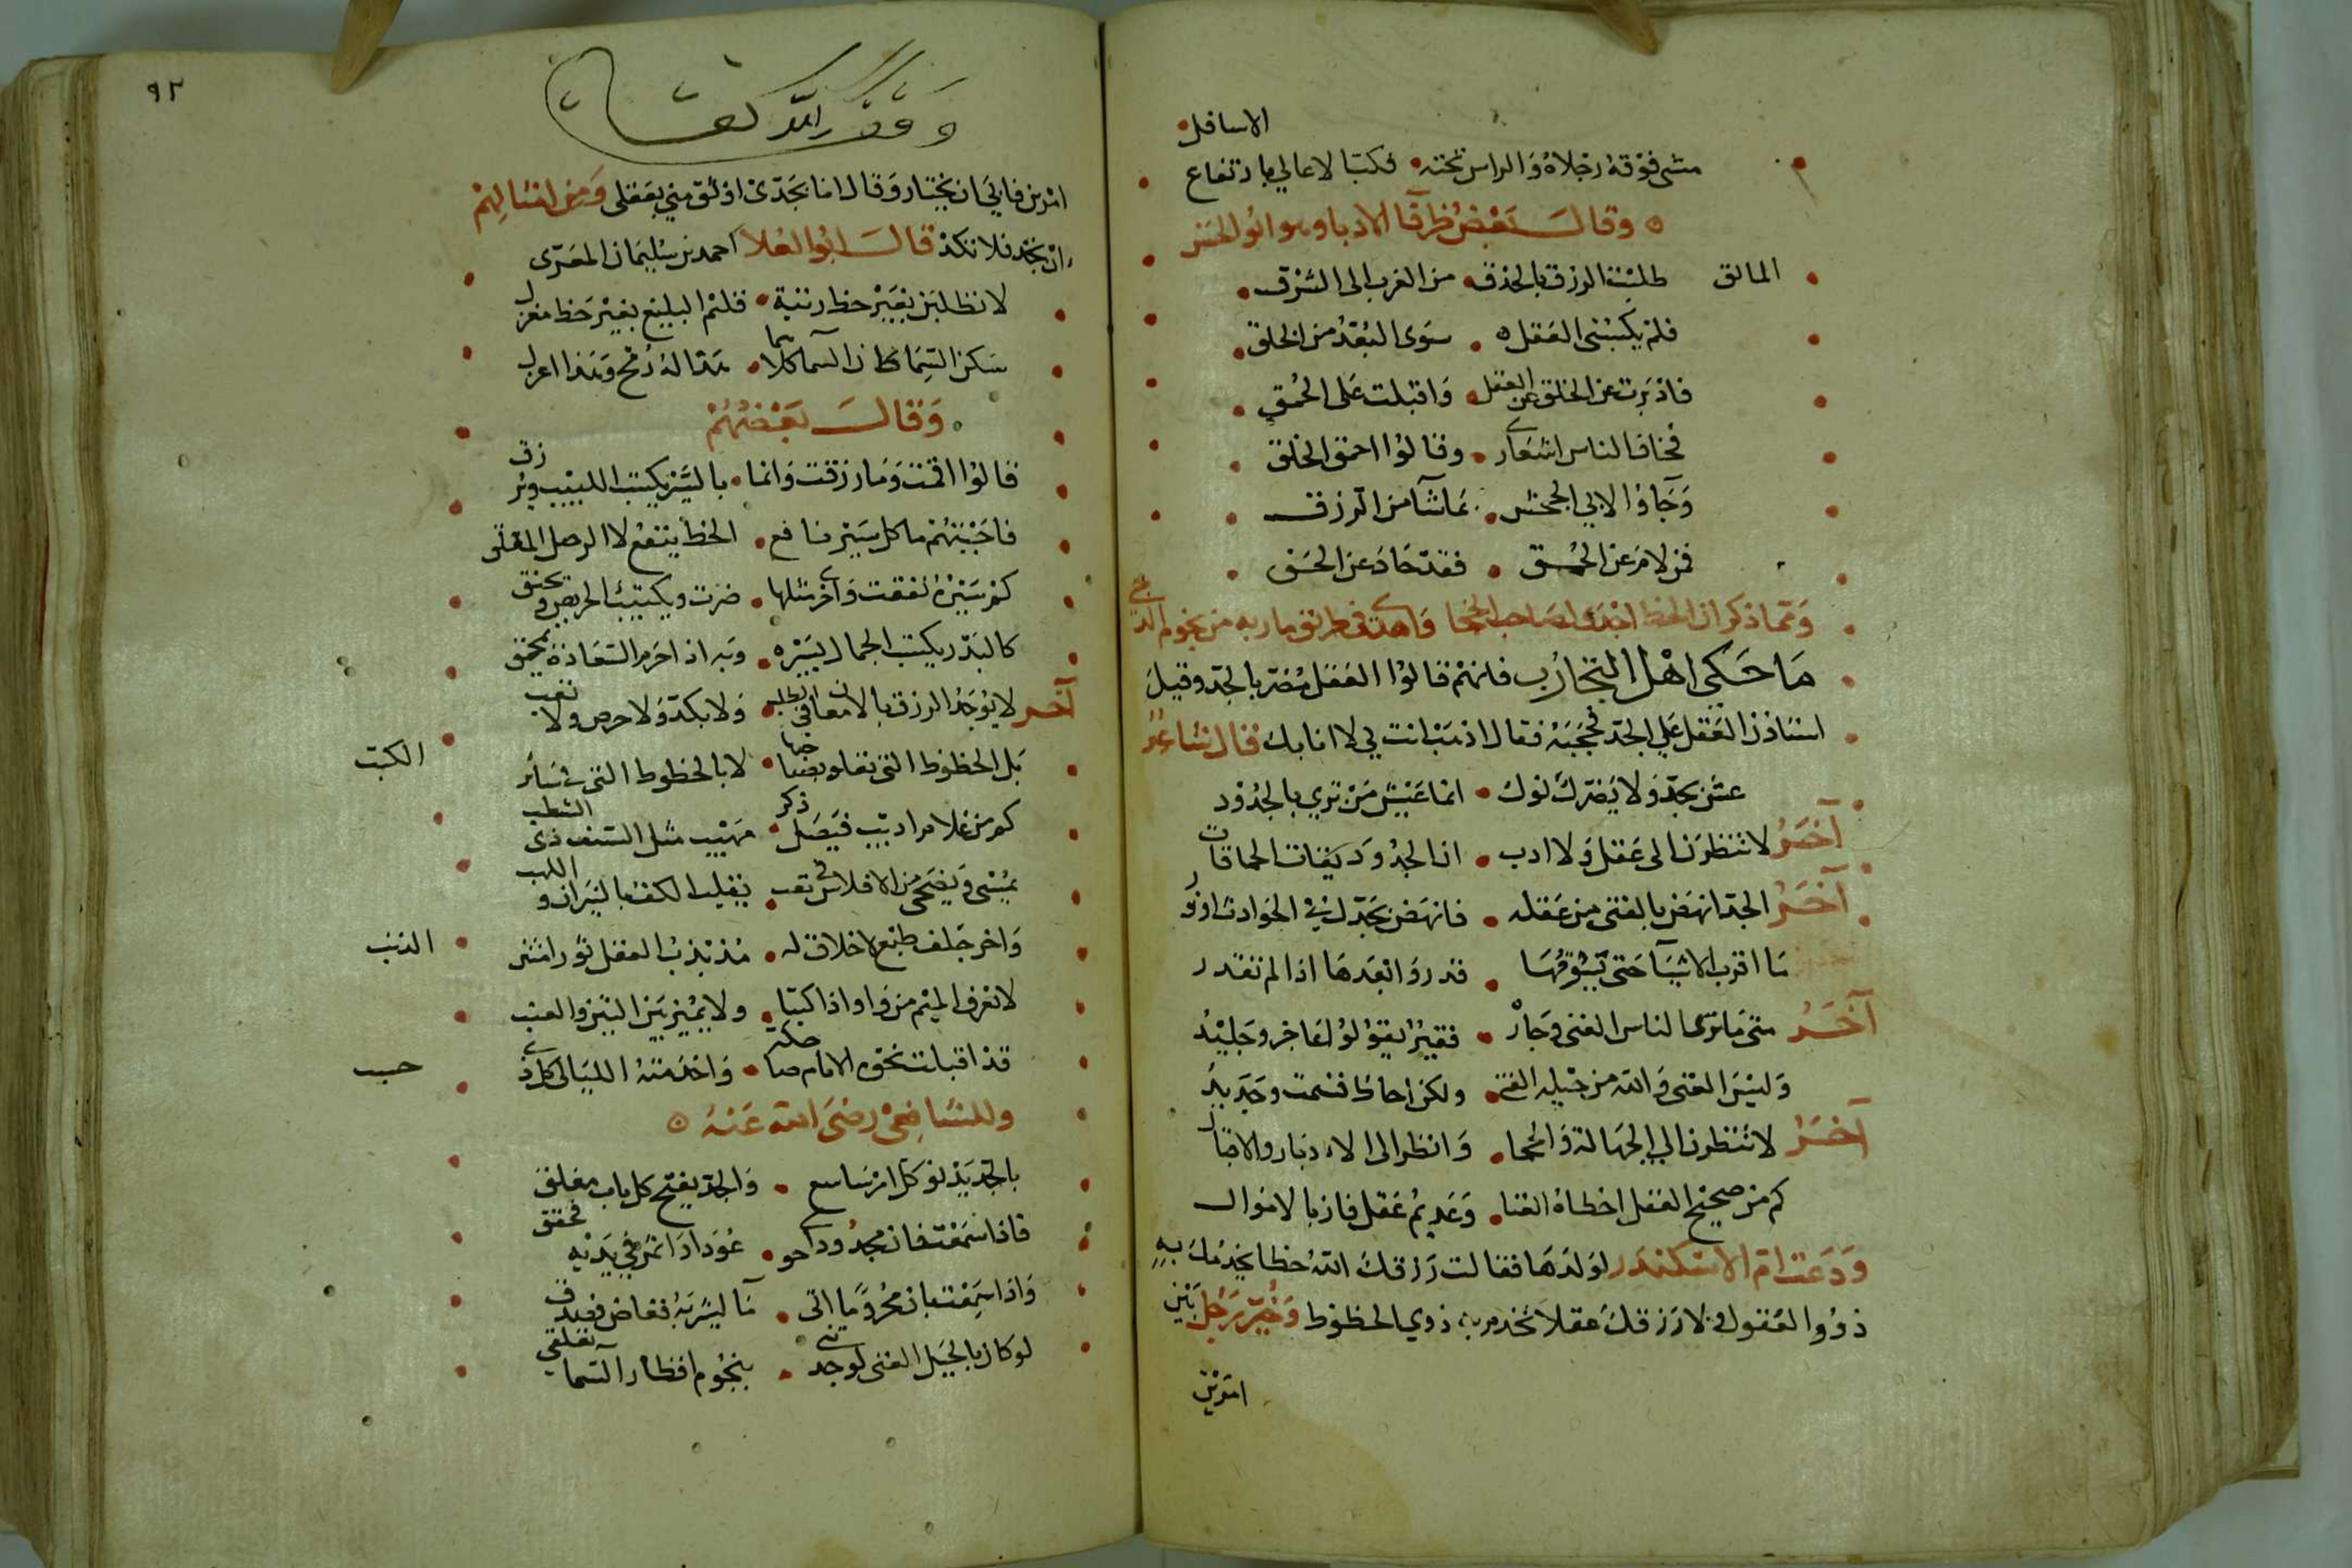 الاسافل
مشى فوقه رجلاه والراس تحته • فكب الاعالي بارتفاع
وقال بعض ظرفا الادبا وهو ابو الحسن
المالق طلبت الرزق بالحذق • من الغرب الى الشرق •
فلم يكسبنى العقل • سوى البعد من الخلق •
فادبرت عن الخلق عن العقل • واقبلت على الحمق •
فخافا لناس اشعارى • وقالوا احمق الخلق
وجاؤا لابي الجحش • بماشآ من الرزق
فمن لام عن الحمق • فقد حاد عن الحق
ومما ذكر ان الحظ اجدى لصاحب الحجا واهدى فى طريق ماربه من نجوم الدجى
ما حكى اهل التجارب فانهم قالوا العقل مضر بالجد وقيل
استاذن العقل على الجد فحجبه فقال اذهب انت لي لا انا بك قال شاعر
عش بجد ولا يضرك نوك • انما عيش من ترى بالجدود
آخر لا تنظرن الى عقل ولا ادب • ان الجدود يقات الحماقات
آخر الجد انهض بالفتى من عقله • فانهض بجدك فى الحوادث اوذر
ما اقرب الاشيآ حتى يسوقها • قدر وابعدها اذا لم تقدر
آخر متى ما ترى الناس الغنى وجار • فقير يقولوا عاجز وجليد
وليس الغنى والله من حيله الفتى • ولكن احاظ قسمت وجديد
آخر لا تنظرن الي الجهالة والحجا • وانظر الى الادبار والاقبال
كم من صحيح العقل اخطاه الغنا • وعديم عقل فاز بالاموال
ودعت ام الاسكندر لولدها فقالت رزقك الله حظا يخدمك به
ذووا العقول ولا رزقك عقلا تخدم به ذوي الحظوظ وخير رجل بين
امرين
٩٢
وقف لله تعالى
امرين فابى ان يختار وقال انا بجدى اوثق مني بعقلى ومن امثالهم
ان تجد فلا تكد قال ابو العلا احمد بن سليمان المعرى
لا تطلبن بغير حظ رتبة • قلم البليغ بغير حظ مغزل
سكن السماكان السما كلاهما • هذا له رمح وهذا اعزل
وقال بعضهم
قالوا اقمت وما رزقت وانما • بالسير يكتسب اللبيب ويرزق
فاجبتهم ما كل سير نافع • الحظ ينفع لا الرحل المقلق
كم سيرة نفعت واخرى مثلها • ضرت ويكتسب الحريص ويخفق
كالبدر يكتسب الجمال بسيره • وبه اذا حرم السعادة يمحق
آخر لا يوجد الرزق بالامعان فى طلب • ولا بكد ولا حرص ولا تعب
بل الحظوظ التى تعلو بصاحبها • لا بالحظوظ التى فى سائر الكتب
كم من غلام اديب فيصل ذكر • مهيب مثل السيف ذى الشطب
يمسى ويضحى من الافلاس فى تعب • يقلب الكف بالنيران واللهب
واخر جلف طبع لا خلاق له • مذبذب العقل ثور اشر الذنب
لا تعرف الميم من واو اذا كتبا • ولا يميز بين التين والعنب
قد اقبلت نحوه الايام ضاحكة • واخدمته الليالى كل ذى حسب
وللشافعى رضى الله عنه
بالجد يدنو كل امر شاسع • والجد يفتح كل باب مغلق
فاذا سمعت فان مجدودا حوى • عودا فاثمر في يديه فحقق
واذا سمعت بان محروما اتى • مآ ليشربه فغاض فصدق
لو كان بالحيل الغنى لوجدتنى • بنجوم اقطار السما تعلقى